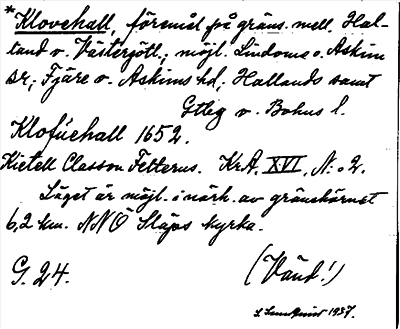 *Klovehall, föremål på gräns. mell. Hal-
land o. Västergötl., möjl. Lindome o. Askim
sr; Fjäre o. Askims hd, Hallands samt
Gtbg o. Bohus l.
Klofúehall 1652.
Kietell Classon Felterus. KrA. XVI, N:o 2.
Läget är möjl. i närh. av gränshörnet
6,2 km. NNÖ Släps kyrka.
G. 24.
(Vänd!)
1937.